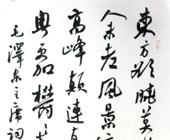 東方欲曉莫
人未老風景
高峰顛連
粤更加欝
毛澤東主席詞